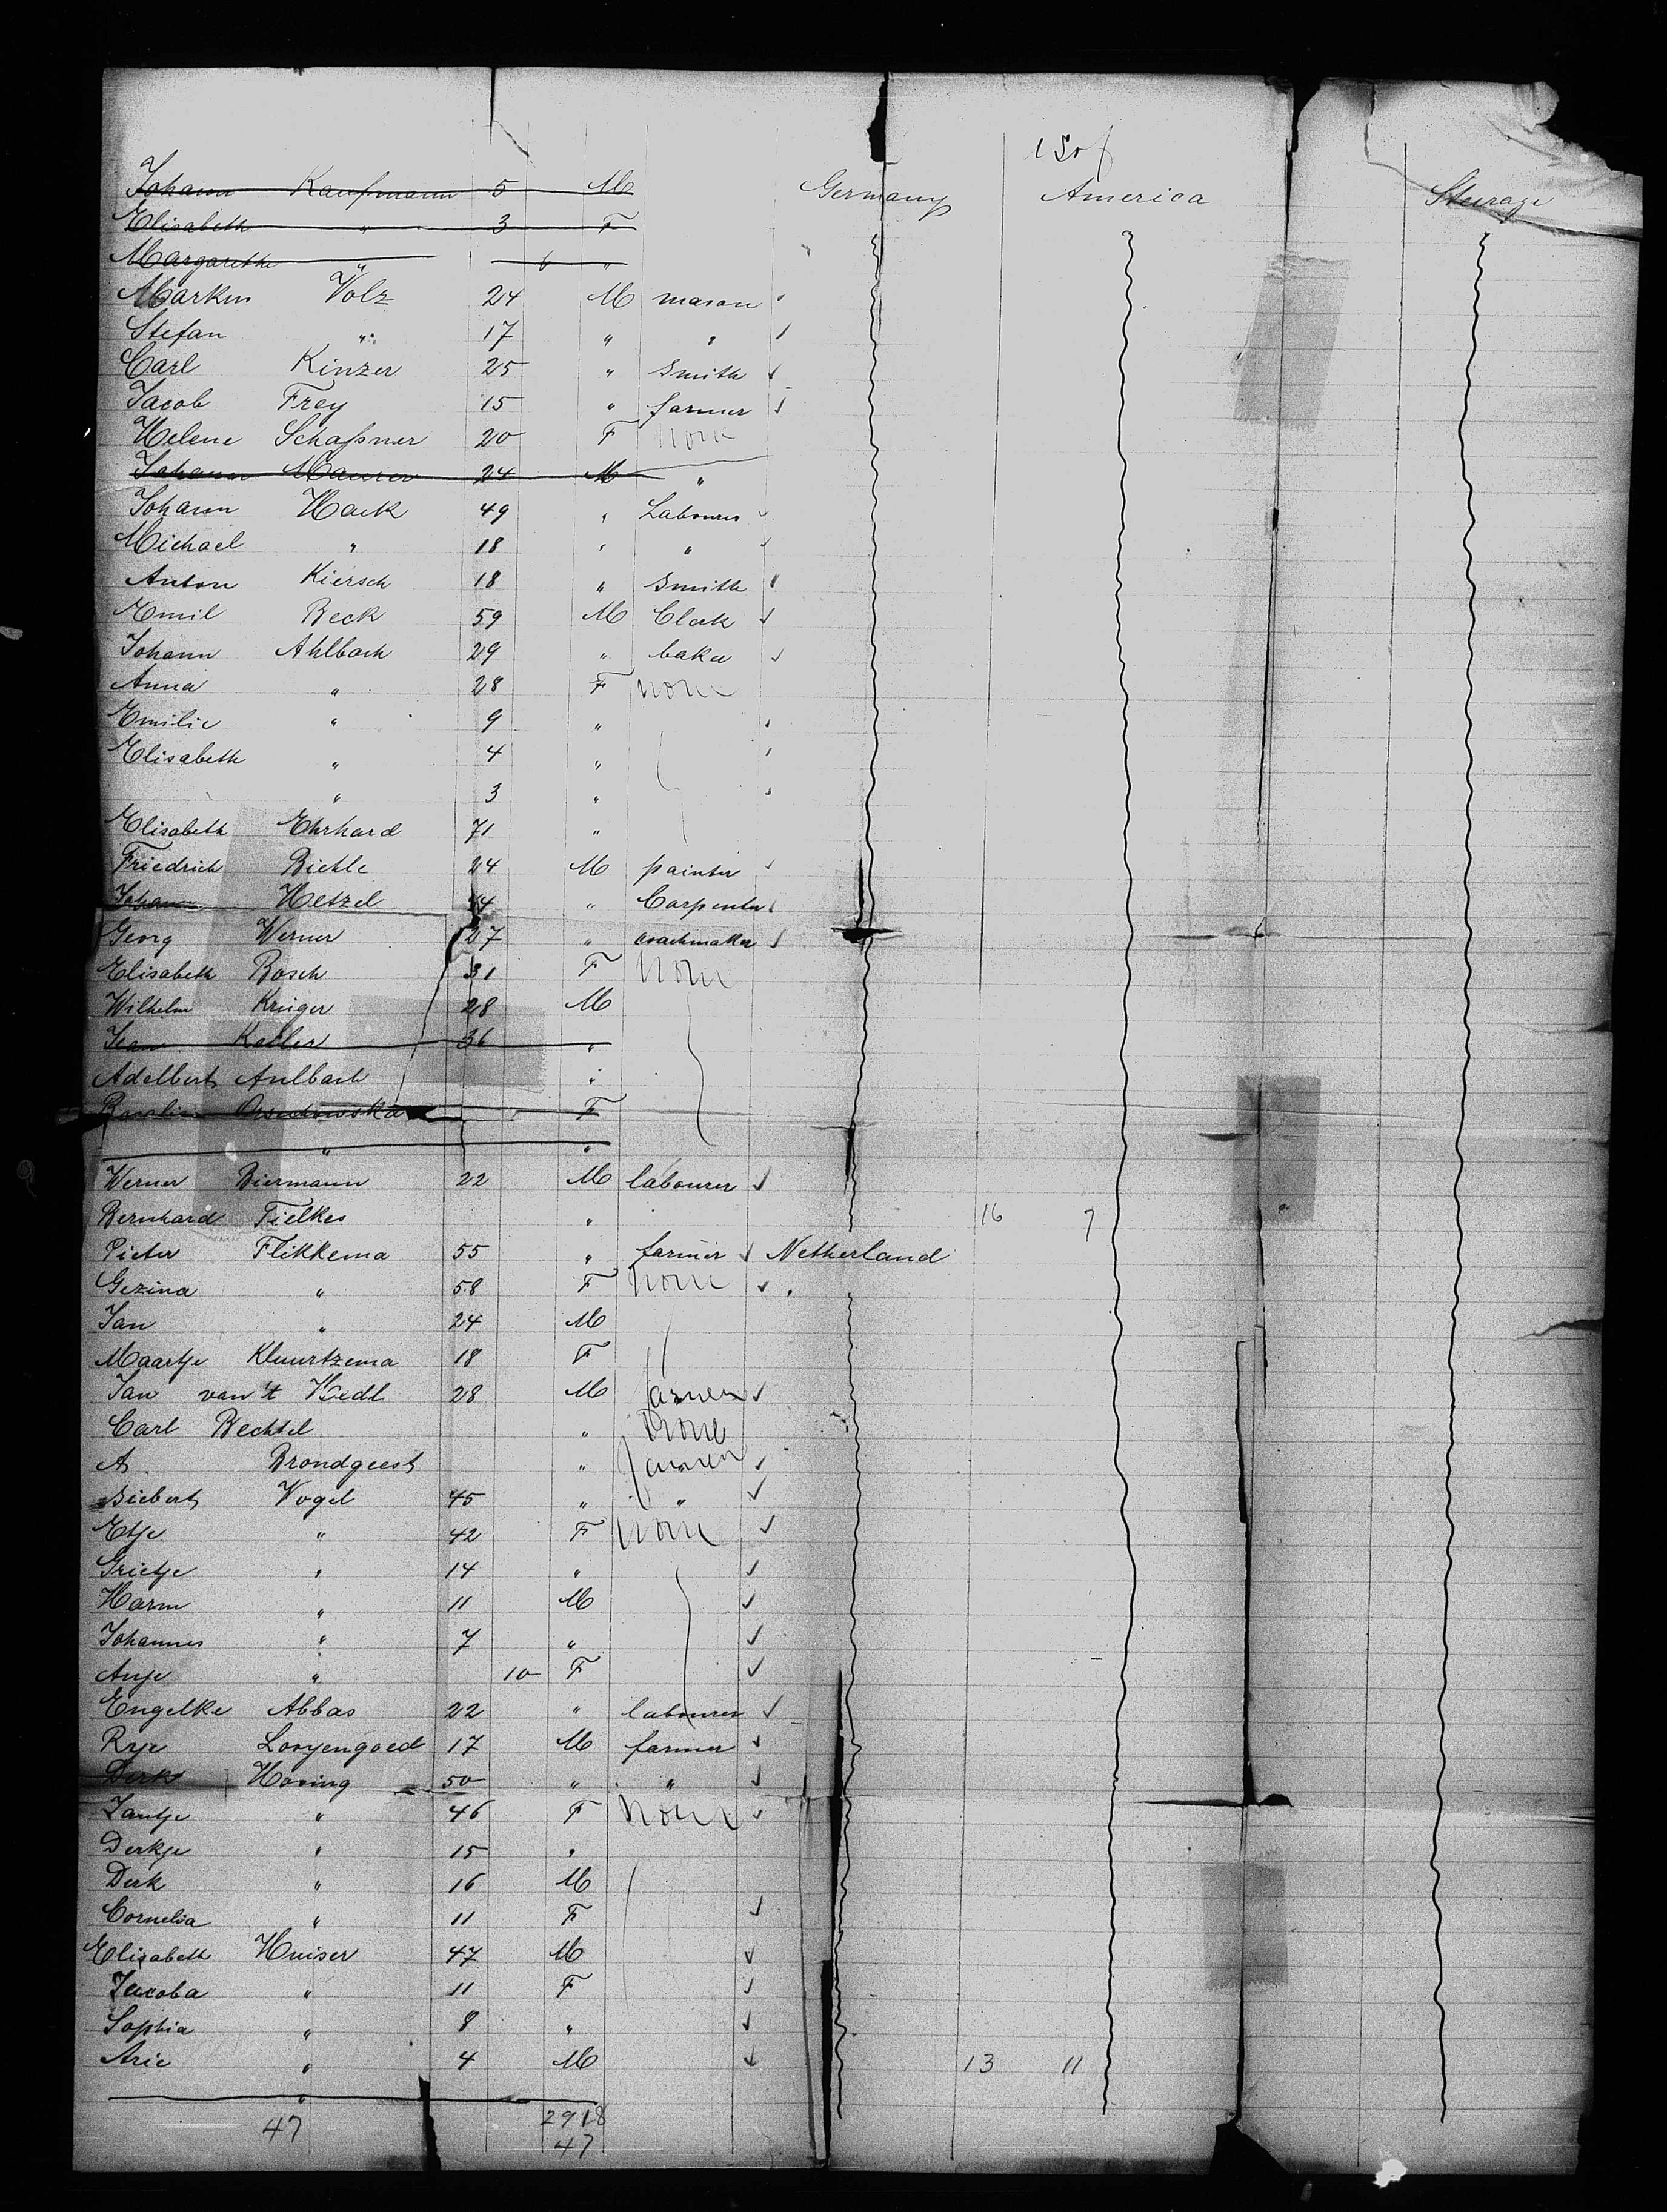 1 Sof
Johann Kaufmann 5 M Germany America Steerage
Elisabeth " 3 F
Margarethe " 6 "
Markus Volz 24 M mason
Stefan " 17 " "
Carl Kinzer 25 " Smith
Jacob Frey 15 " farmer
Helene Schaffner 20 F None
Johann Maurer 24 M "
Johann Hack 49 " Labourer
Michael " 18 " "
Anton Kiersch 18 " Smith
Emil Beck 59 M Clerk
Johann Ahlbach 29 " baker
Anna " 28 F None
Emilie " 9 "
Elisabeth " 4 "
" 3 "
Elisabeth Ehrhard 71 "
Friedrich Biehle 24 M painter
Johann Hetzel 44 " Carpenter
Georg Werner 27 " coachmaker
Elisabeth Bosch 31 F None
Wilhelm Krüger 28 M
Jean Keller 36 "
Adelbert Aulbach "
F
" "
Werner Biermann 22 M labourer
Bernhard Tielkes " 16 7
Pieter Flikkema 55 " farmer Netherland
Gezina " 58 F None
Jan " 24 M
Maartje Kluurtzema 18 F
Jan van't 28 M farmer
Carl Bechtel " None
A. Brondgeest " farmer
Siebert Vogel 45 " "
Etje " 42 F None
Grietje " 14 "
Harm " 11 M
Johannes " 7 "
Antje " 10 F
Engelke Abbas 22 " labourer
Rije Looyengoed 17 M farmer
Derk Hoving 50 " "
Jantje " 46 F None
Derkje " 15 "
Derk " 16 M
Cornelia " 11 F
Elisabeth Huiser 47 M
Jacoba " 11 F
Sophia " 8 "
Arie " 4 M 13 11
"
47 29 18
47